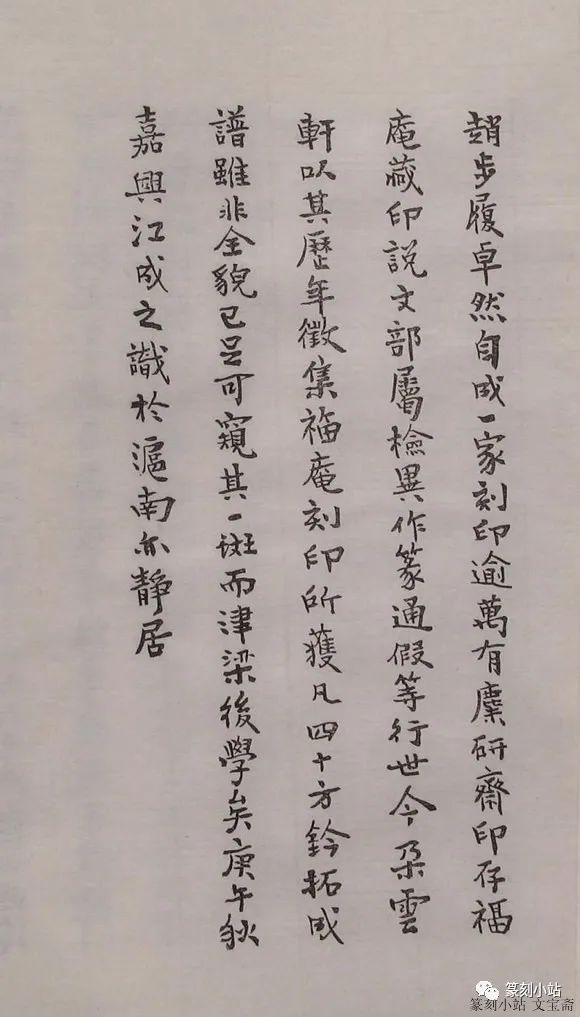 趙步履卓然自成一家刻印逾萬有麋研齋印存福
庵藏印説文部屬檢異作篆通假等行世今朵雲
軒以其歷年徵集福庵刻印所獲凡四十方鈐拓成
譜雖非全貌已足可窺其一斑而津梁後學矣庚午秋
嘉興江成之識於滬南亦靜居
篆刻小站
篆刻小站 文宝斋